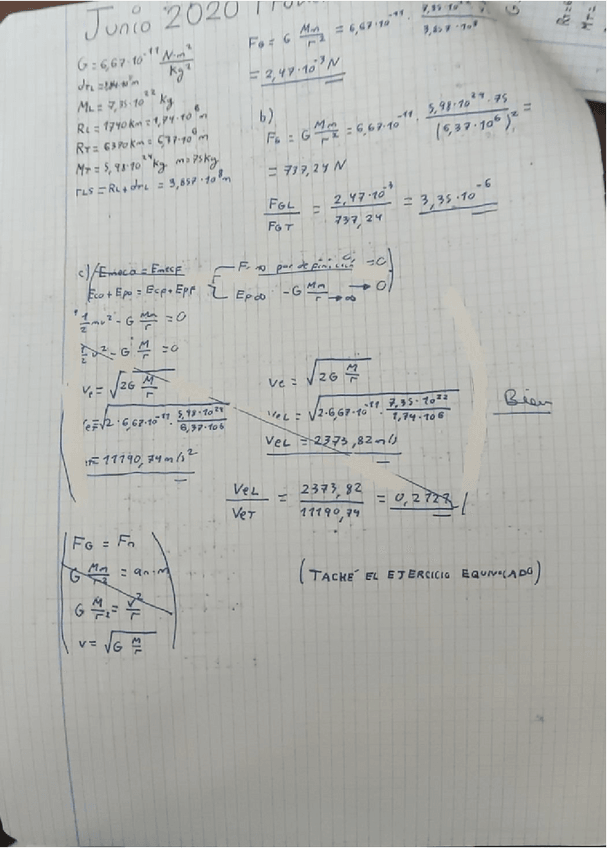 Junio 2020
G = 6,67·10⁻¹¹ N·m²/Kg²
ML = 7,35·10²² Kg
RL = 1740Km = 1,74·10⁶m
RT = 6370Km = 6,37·10⁶m
MT = 5,98·10²⁴Kg m=75Kg
rLS = RL+dTL = 3,857·10⁸m
FG = G Mm/r² = 6,67·10⁻¹¹ ·
= 2,47·10⁻³ N
b)
FG = G Mm/r² = 6,67·10⁻¹¹ · 5,98·10²⁴·75/(6,37·10⁶)² =
= 737,24 N
FGL/FGT = 2,47·10⁻³/737,24 = 3,35·10⁻⁶
c) Emeco = Emecf
Eco+Epo = Ecf+Epf
por definición = 0
Ep∞ -G Mm/r→∞ → 0
1/2 mv² - G Mm/r = 0
1/2 v² - G M/r = 0
Ve = √2G M/r
= √2·6,67·10⁻¹¹ · 5,98·10²⁴/6,37·10⁶
= 11190,74 m/s²
Ve = √2G M/r
VeL = √2·6,67·10⁻¹¹ · 7,35·10²²/1,74·10⁶
VeL = 2373,82 m/s
Bien
VeL/VeT = 2373,82/11190,74 = 0,2727
FG = Fn
G Mm/r² = an·m
G M/r² = v²/r
v = √G M/r
(TACHÉ EL EJERCICIO EQUIVOCADO)